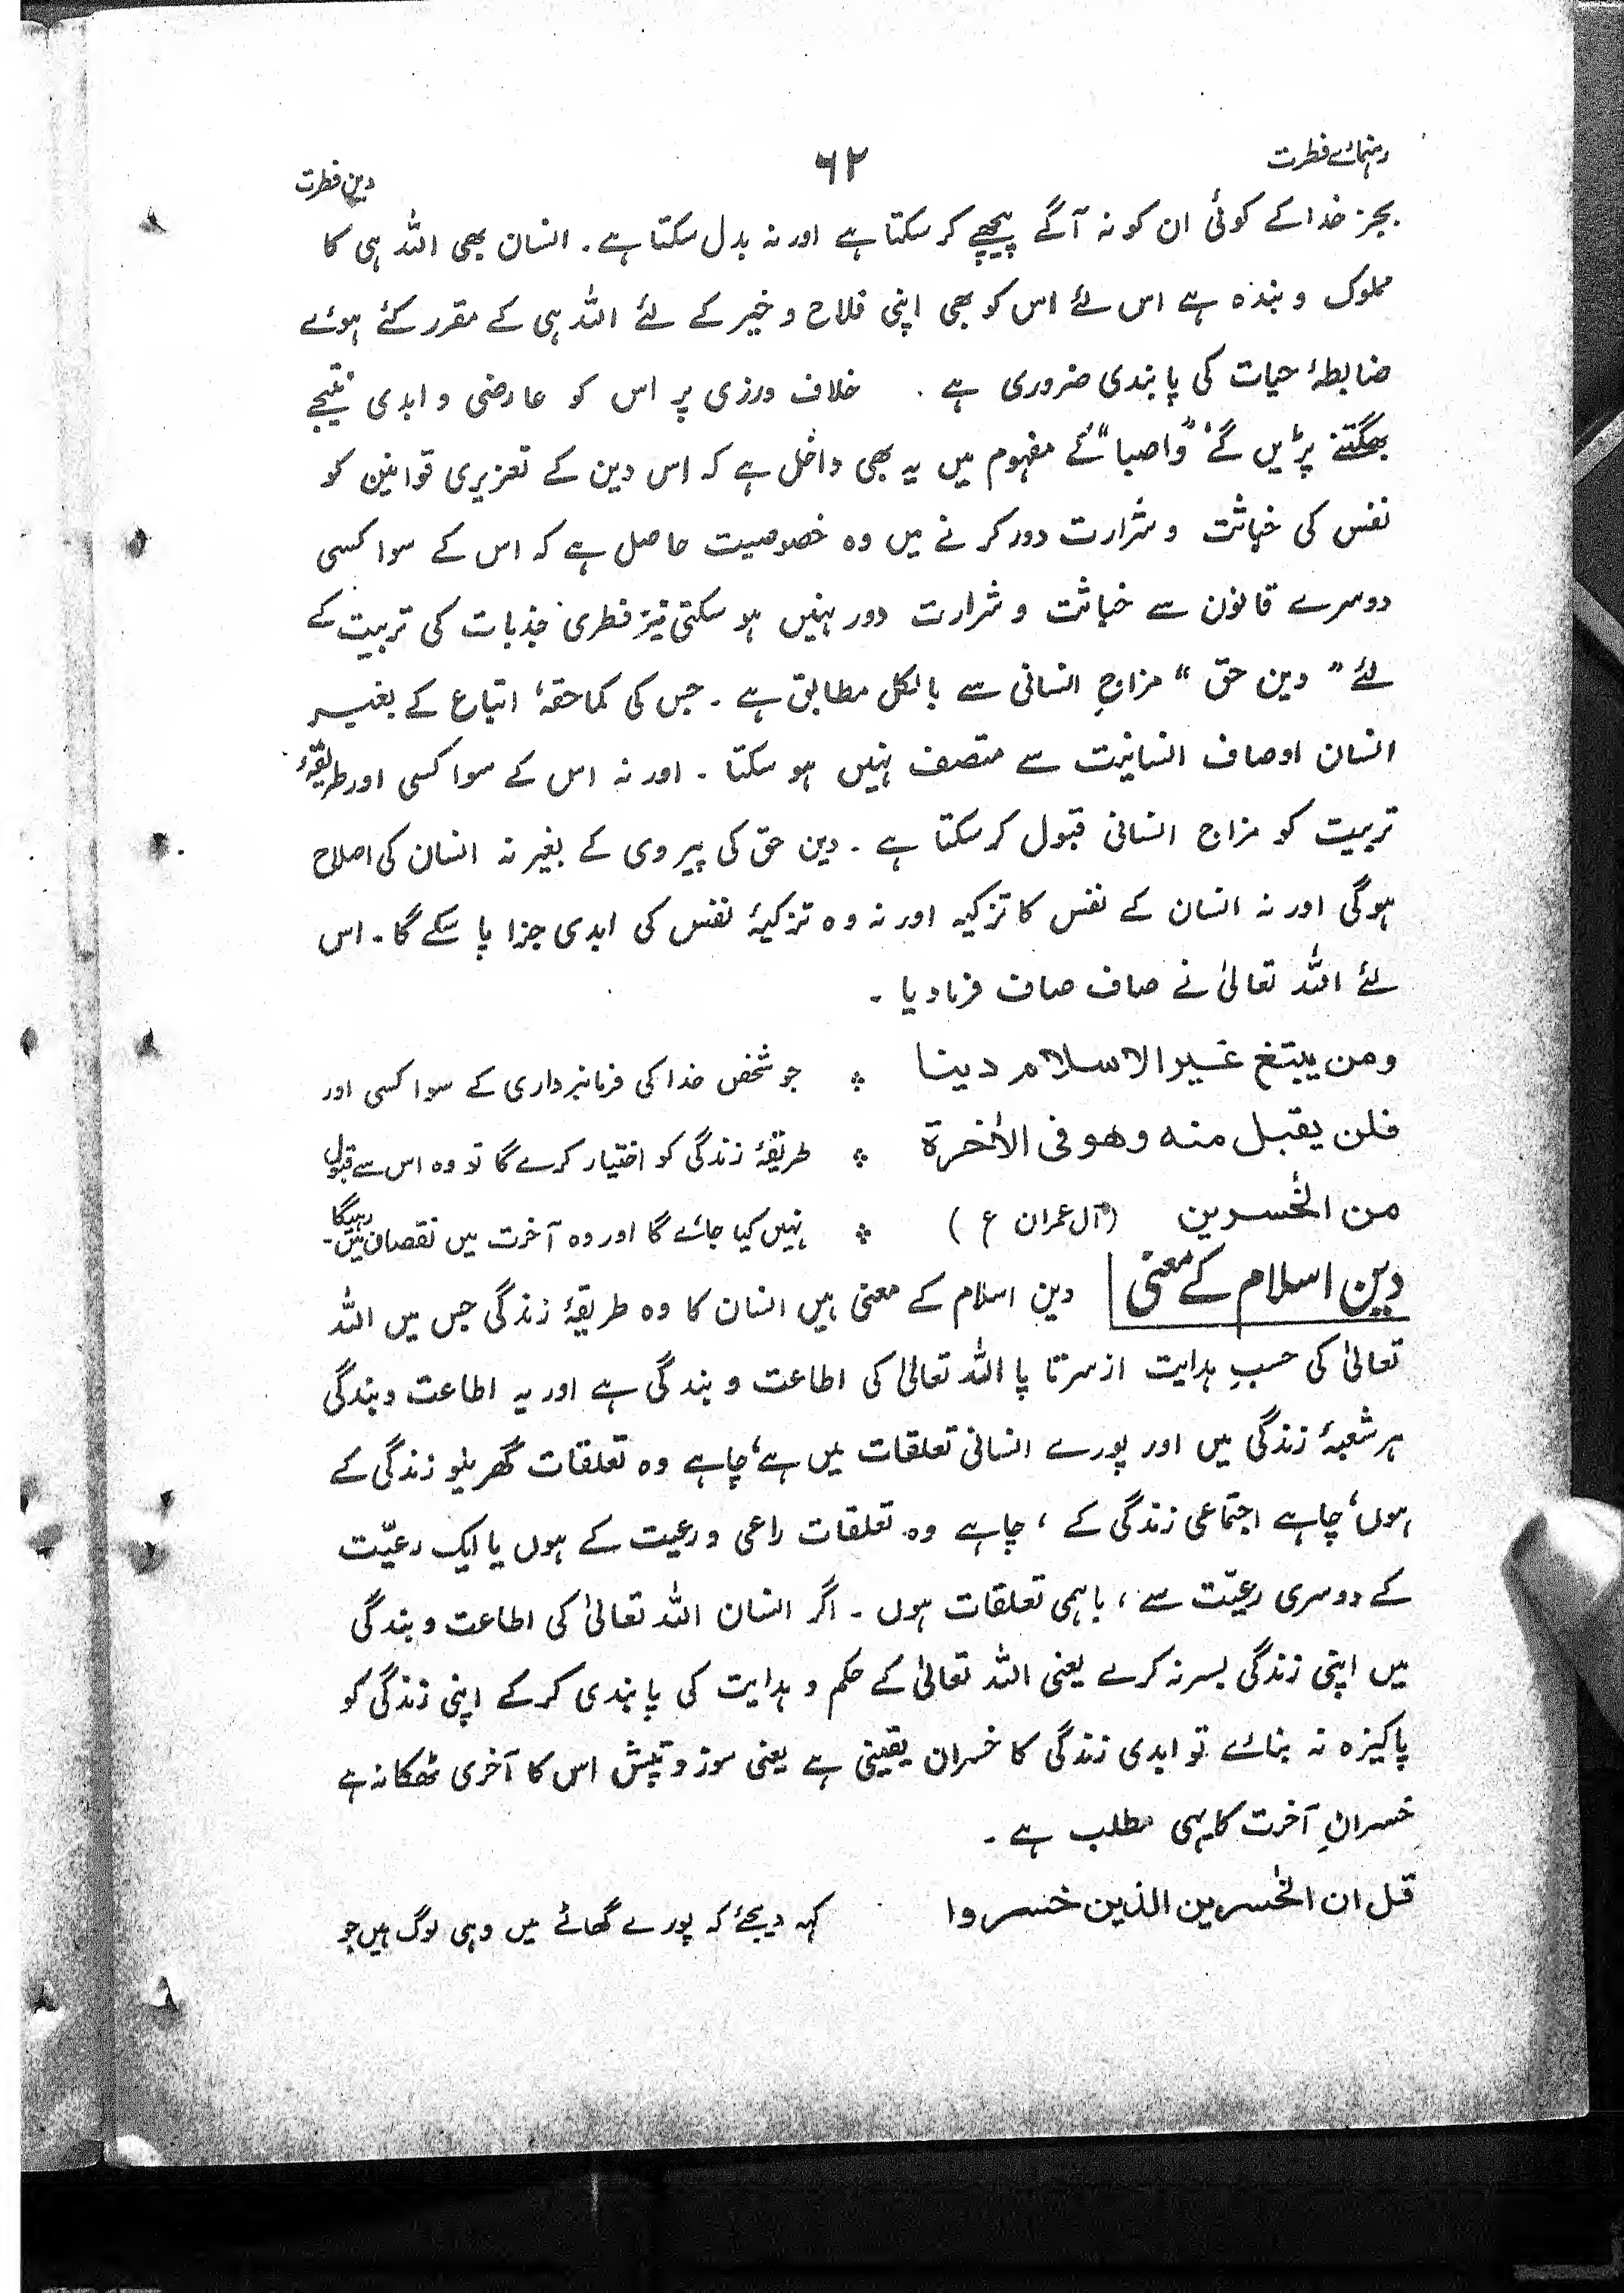 رہنمائے فطرت ۶۲ دین فطرت
بجز خدا کے کوئی ان کو نہ آگے پیچھے کر سکتا ہے اور نہ بدل سکتا ہے۔ انسان بھی اللہ ہی کا
مملوک و بندہ ہے اس لئے اس کو بھی اپنی فلاح و خیر کے لئے اللہ ہی کے مقرر کئے ہوئے
ضابطۂ حیات کی پابندی ضروری ہے۔ خلاف ورزی پر اس کو عارضی و ابدی نتیجے
بھگتنے پڑیں گے، "واصبا" کے مفہوم میں یہ بھی داخل ہے کہ اس دین کے تعزیری قوانین کو
نفس کی خباثت و شرارت دور کرنے میں وہ خصوصیت حاصل ہے کہ اس کے سوا کسی
دوسرے قانون سے خباثت و شرارت دور نہیں ہو سکتی نیز فطری جذبات کی تربیت کے
لئے "دین حق" مزاجِ انسانی سے بالکل مطابق ہے۔ جس کی کماحقہٗ اتباع کے بغیر
انسان اوصاف انسانیت سے متصف نہیں ہو سکتا۔ اور نہ اس کے سوا کسی اور طریقۂ
تربیت کو مزاج انسانی قبول کر سکتا ہے۔ دین حق کی پیروی کے بغیر نہ انسان کی اصلاح
ہوگی اور نہ انسان کے نفس کا تزکیہ اور نہ وہ تزکیۂ نفس کی ابدی جزا پا سکے گا۔ اس
لئے اللہ تعالیٰ نے صاف صاف فرما دیا۔
ومن یبتغ غیر الاسلام دینا ؞ جو شخص خدا کی فرمانبرداری کے سوا کسی اور
فلن یقبل منہ وھو فی الاٰخرۃ ؞ طریقۂ زندگی کو اختیار کرے گا تو وہ اس سے قبول
من الخٰسرین (آل عمران ع) ؞ نہیں کیا جائے گا اور وہ آخرت میں نقصان میں رہیگا۔
دین اسلام کے معنی دین اسلام کے معنی ہیں انسان کا وہ طریقۂ زندگی جس میں اللہ
تعالیٰ کی حسبِ ہدایت از سر تا پا اللہ تعالیٰ کی اطاعت و بندگی ہے اور یہ اطاعت و بندگی
ہر شعبۂ زندگی میں اور پورے انسانی تعلقات میں ہے، چاہے وہ تعلقات گھریلو زندگی کے
ہوں، چاہے اجتماعی زندگی کے، چاہے وہ تعلقات راعی و رعیت کے ہوں یا ایک رعیّت
کے دوسری رعیّت سے، باہمی تعلقات ہوں۔ اگر انسان اللہ تعالیٰ کی اطاعت و بندگی
میں اپنی زندگی بسر نہ کرے یعنی اللہ تعالیٰ کے حکم و ہدایت کی پابندی کر کے اپنی زندگی کو
پاکیزہ نہ بنائے تو ابدی زندگی کا خسران یقینی ہے یعنی سوز و تپش اس کا آخری ٹھکانہ ہے
خسرانِ آخرت کا یہی مطلب ہے۔
قل ان الخٰسرین الذین خسروا کہہ دیجئے کہ پورے گھاٹے میں وہی لوگ ہیں جو